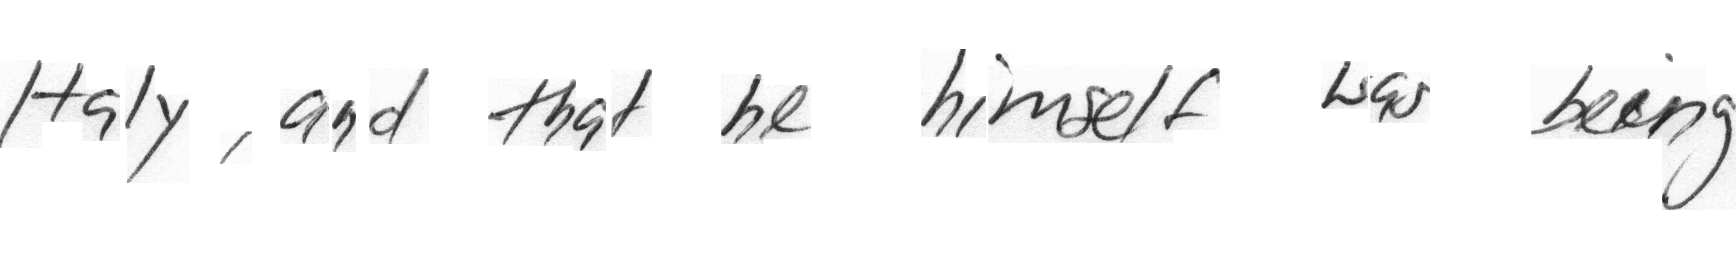 Italy, and that he himself was being